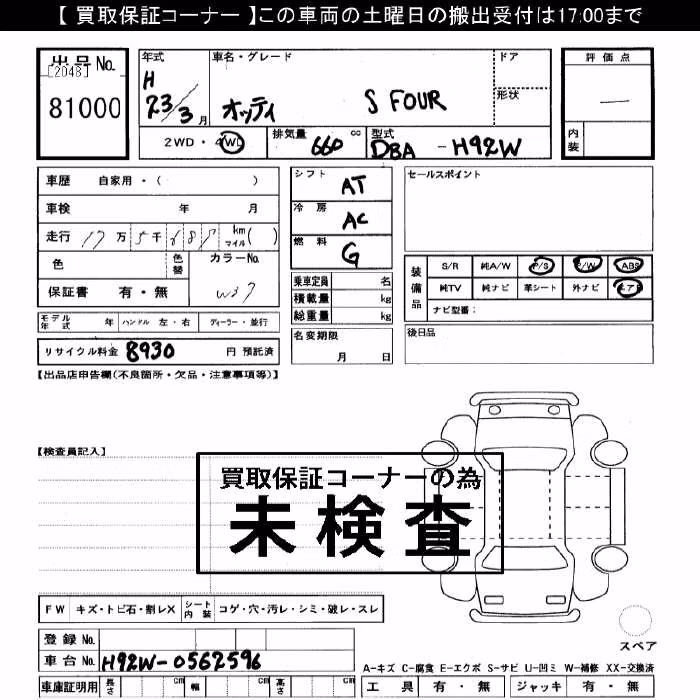 【 買取保証コーナー 】この車両の土曜日の搬出受付は17:00まで
出品 No.
[2048]
81000
年式
H
23/3月
車名・グレード
オッティ S FOUR
ドア
形状
評価点
―
内装
2WD・4WD
排気量 660 cc
型式 DBA - H92W
車歴 自家用・( )
車検 年 月
走行 万 千 km マイル ( )
色
色替
カラーNo.
保証書 有・無
モデル年式 年 ハンドル 左・右 ディーラー・並行
リサイクル料金 8930 円 預託済
シフト AT
冷房 AC
燃料 G
乗車定員 名
積載量 kg
総重量 kg
名変期限
月 日
セールスポイント
装備品
S/R 純A/W P/S P/W ABS
純TV 純ナビ 革シート 外ナビ エアB
ナビ型番:
後日品
【出品店申告欄(不良箇所・欠品・注意事項等)】
【検査員記入】
買取保証コーナーの為
未検査
FW キズ・トビ石・割レX シート内装 コゲ・穴・汚レ・シミ・破レ・スレ
スペア
登録 No.
車台 No. H92W-0562596
A-キズ C-腐食 E-エクボ S-サビ U-凹ミ W-補修 XX-交換済
車庫証明用 長さ cm 幅 cm 高さ cm
工具 有・無 ジャッキ 有・無